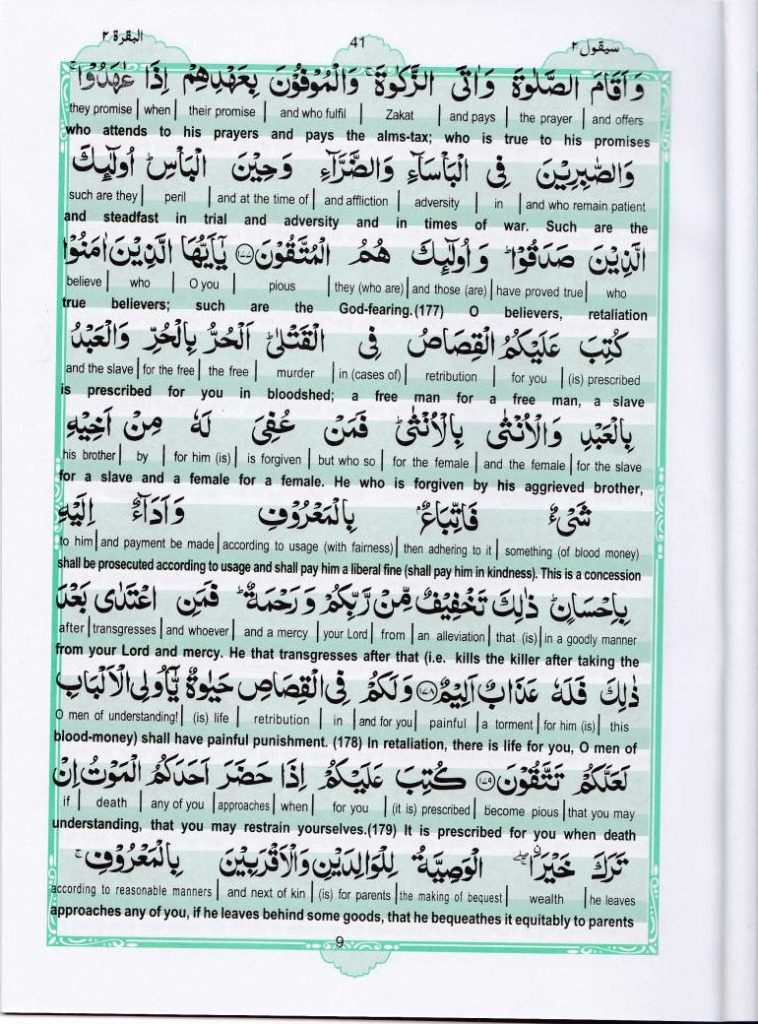 البقرة ٢
41
سيقول ٢
وَ اَقَامَ الصَّلٰوةَ وَاٰتَى الزَّكٰوةَ ۚ وَالْمُوْفُوْنَ بِعَهْدِهِمْ اِذَا عٰهَدُوْا ۚ
they promise | when | their promise | and who fulfil | Zakat | and pays | the prayer | and offers
who attends to his prayers and pays the alms-tax; who is true to his promises
وَالصّٰبِرِيْنَ فِى الْبَاْسَآءِ وَالضَّرَّآءِ وَحِيْنَ الْبَاْسِ ؕ اُولٰٓئِكَ
such are they | peril | and at the time of | and affliction | adversity | in | and who remain patient
and steadfast in trial and adversity and in times of war. Such are the
الَّذِيْنَ صَدَقُوْا ؕ وَ اُولٰٓئِكَ هُمُ الْمُتَّقُوْنَ ۝١٧٧ يٰۤاَيُّهَا الَّذِيْنَ اٰمَنُوْا
believe | who | O you | pious | they (who are) | and those (are) | have proved true | who
true believers; such are the God-fearing.(177) O believers, retaliation
كُتِبَ عَلَيْكُمُ الْقِصَاصُ فِى الْقَتْلٰى ؕ اَلْحُرُّ بِالْحُرِّ وَالْعَبْدُ
and the slave | for the free | the free | murder | in (cases of) | retribution | for you | (is) prescribed
is prescribed for you in bloodshed; a free man for a free man, a slave
بِالْعَبْدِ وَالْاُنْثٰى بِالْاُنْثٰى ؕ فَمَنْ عُفِىَ لَهٗ مِنْ اَخِيْهِ
his brother | by | for him (is) | is forgiven | but who so | for the female | and the female | for the slave
for a slave and a female for a female. He who is forgiven by his aggrieved brother,
شَىْءٌ فَاتِّبَاعٌۢ بِالْمَعْرُوْفِ وَاَدَآءٌ اِلَيْهِ
to him | and payment be made | according to usage (with fairness) | then adhering to it | something (of blood money)
shall be prosecuted according to usage and shall pay him a liberal fine (shall pay him in kindness). This is a concession
بِاِحْسَانٍ ؕ ذٰلِكَ تَخْفِيْفٌ مِّنْ رَّبِّكُمْ وَرَحْمَةٌ ؕ فَمَنِ اعْتَدٰى بَعْدَ
after | transgresses | and whoever | and a mercy | your Lord | from | an alleviation | that (is) | in a goodly manner
from your Lord and mercy. He that transgresses after that (i.e. kills the killer after taking the
ذٰلِكَ فَلَهٗ عَذَابٌ اَلِيْمٌ ۝١٧٨ وَلَكُمْ فِى الْقِصَاصِ حَيٰوةٌ يّٰۤاُولِى الْاَلْبَابِ
O men of understanding! | (is) life | retribution | in | and for you | painful | a torment | for him (is) | this
blood-money) shall have painful punishment. (178) In retaliation, there is life for you, O men of
لَعَلَّكُمْ تَتَّقُوْنَ ۝١٧٩ كُتِبَ عَلَيْكُمْ اِذَا حَضَرَ اَحَدَكُمُ الْمَوْتُ اِنْ
if | death | any of you | approaches | when | for you | (it is) prescribed | become pious | that you may
understanding, that you may restrain yourselves.(179) It is prescribed for you when death
تَرَكَ خَيْرًا ۖ اۨلْوَصِيَّةُ لِلْوَالِدَيْنِ وَالْاَقْرَبِيْنَ بِالْمَعْرُوْفِ ۚ
according to reasonable manners | and next of kin | (is) for parents | the making of bequest | wealth | he leaves
approaches any of you, if he leaves behind some goods, that he bequeathes it equitably to parents
9